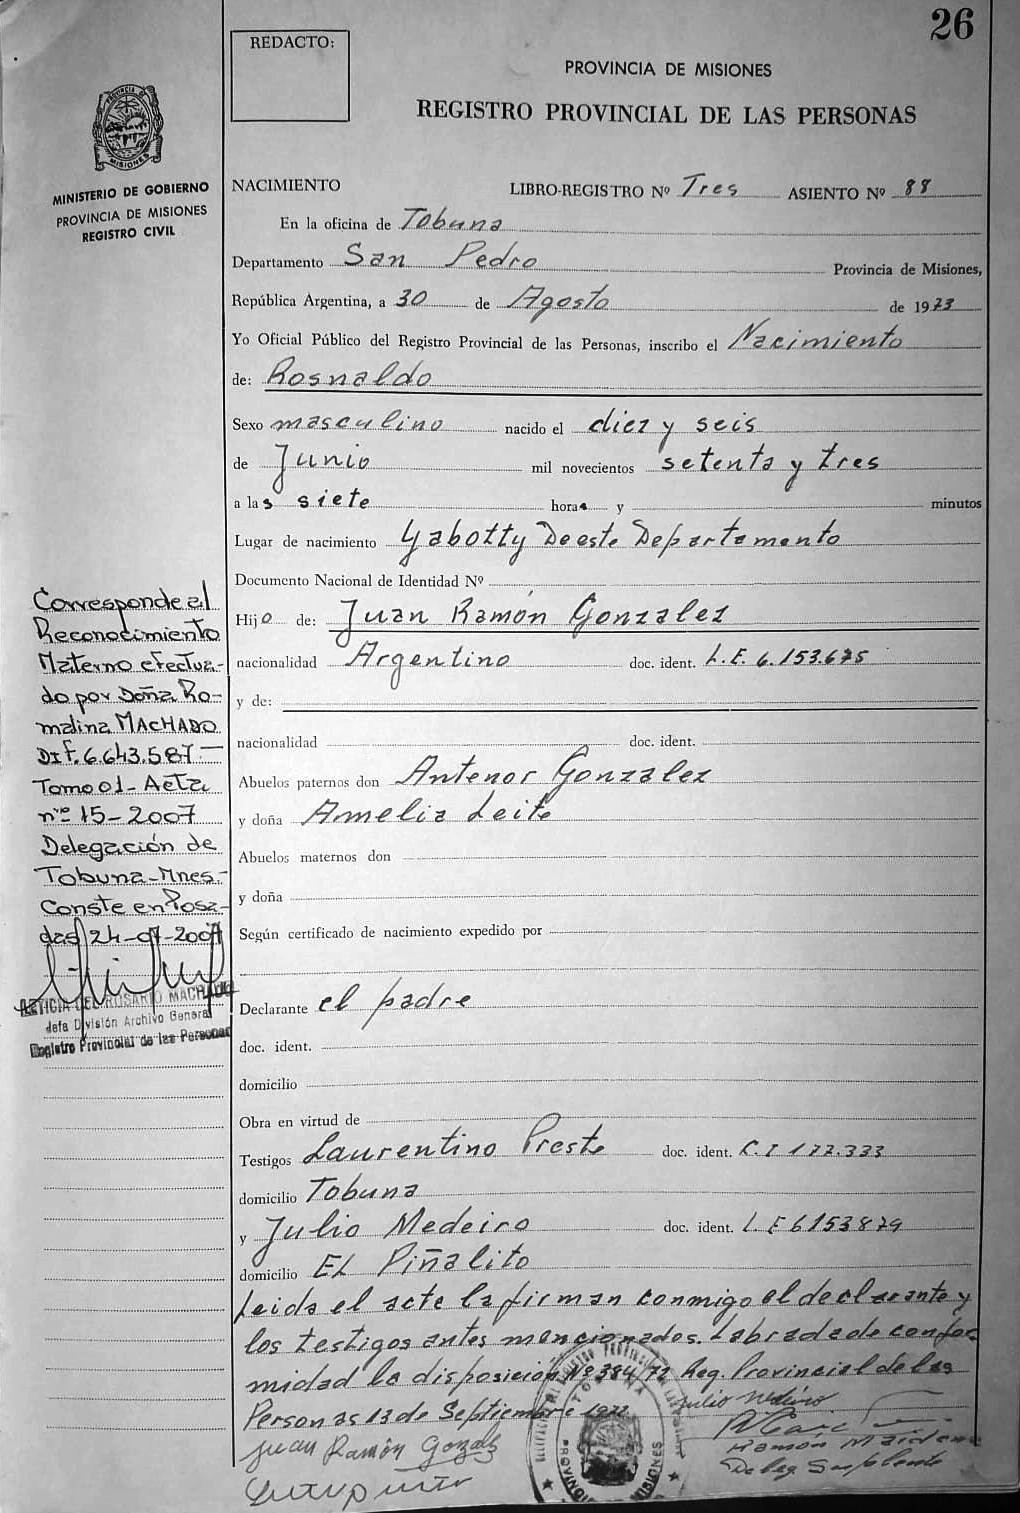 26
REDACTO:
PROVINCIA DE MISIONES
REGISTRO PROVINCIAL DE LAS PERSONAS
PROVINCIA DE
MISIONES
MINISTERIO DE GOBIERNO
PROVINCIA DE MISIONES
REGISTRO CIVIL
NACIMIENTO LIBRO-REGISTRO Nº Tres ASIENTO Nº 88
En la oficina de Tobuna
Departamento San Pedro Provincia de Misiones,
República Argentina, a 30 de Agosto de 1973
Yo Oficial Público del Registro Provincial de las Personas, inscribo el Nacimiento
de: Rosnaldo
Sexo masculino nacido el diez y seis
de Junio mil novecientos setenta y tres
a las siete horas y minutos
Lugar de nacimiento Yabotty De este Departamento
Documento Nacional de Identidad Nº
Hijo de: Juan Ramón Gonzalez
nacionalidad Argentino doc. ident. L.E. 6.153.675
y de:
nacionalidad doc. ident.
Abuelos paternos don Antenor Gonzalez
y doña Amelia Leite
Abuelos maternos don
y doña
Según certificado de nacimiento expedido por
Declarante el padre
doc. ident.
domicilio
Obra en virtud de
Testigos Laurentino Preste doc. ident. C.I 172.333
domicilio Tobuna
y Julio Medeiro doc. ident. L E 6153879
domicilio EL Piñalito
Leida el acte la firman conmigo el declarante y
los testigos antes mencionados. Labrada de confor
midad la disposición Nº 384/72 Reg. Provincial de las
Personas 13 de Septiembre 1972
Julio Medeiro
Juan Ramón Gonzalz
Ramón
Deleg. Suplente
TOBUNA
MISIONES
Corresponde al
Reconocimiento
Materno efectua-
do por Doña Ro-
malina MACHADO
DIF. 6.643.587-
Tomo 01- Acta
nº 15-2007
Delegación de
Tobuna-Mnes.-
Conste en Posa-
das, 24-07-2007
LETICIA DEL ROSARIO MACHADO
Jefa División Archivo General
Registro Provincial de las Personas